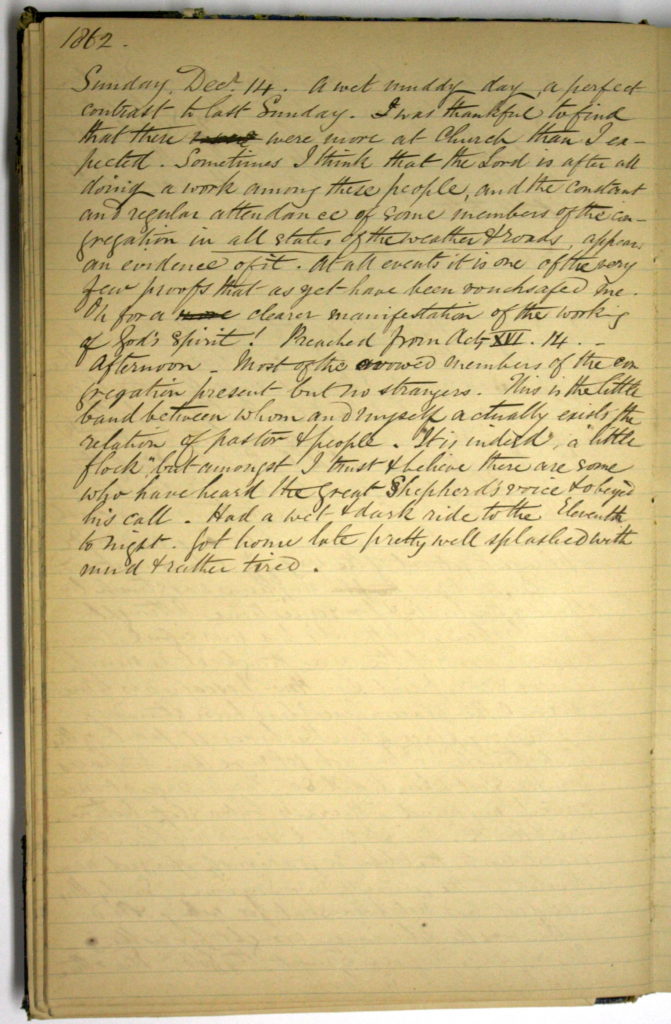 1862.
Sunday, Decr. 14. A wet muddy day, a perfect
contrast to last Sunday. I was thankful to find
that there were more at Church than I ex-
pected. Sometimes I think that the Lord is after all
doing a work among these people, and the constant
and regular attendance of some members of the con-
gregation in all states of the weather & roads, appears
an evidence of it. At all events it is one of the very
few proofs that as yet have been vouchsafed me.
Oh for a clearer manifestation of the working
of God's Spirit! Preached from Acts XVI. 14. -
Afternoon - Most of the avowed members of the con
gregation present but no strangers. This is the little
band between whom and myself actually exists the
relation of pastor & people. It is indeed, a "little
flock" but amongst I trust & believe there are some
who have heard the great Shepherd's voice & obeyed
his call. Had a wet & dark ride to the Eleventh
to night. Got home late pretty well splashed with
mud & rather tired.